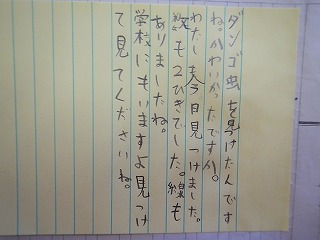 ダンゴ虫を見つけたんです
ね。かわいかったですか。
わたしも今日見つけました。
も2ひきでした。線も
ありましたね。
学校にもいますよ見つけ
て見てくださいね。